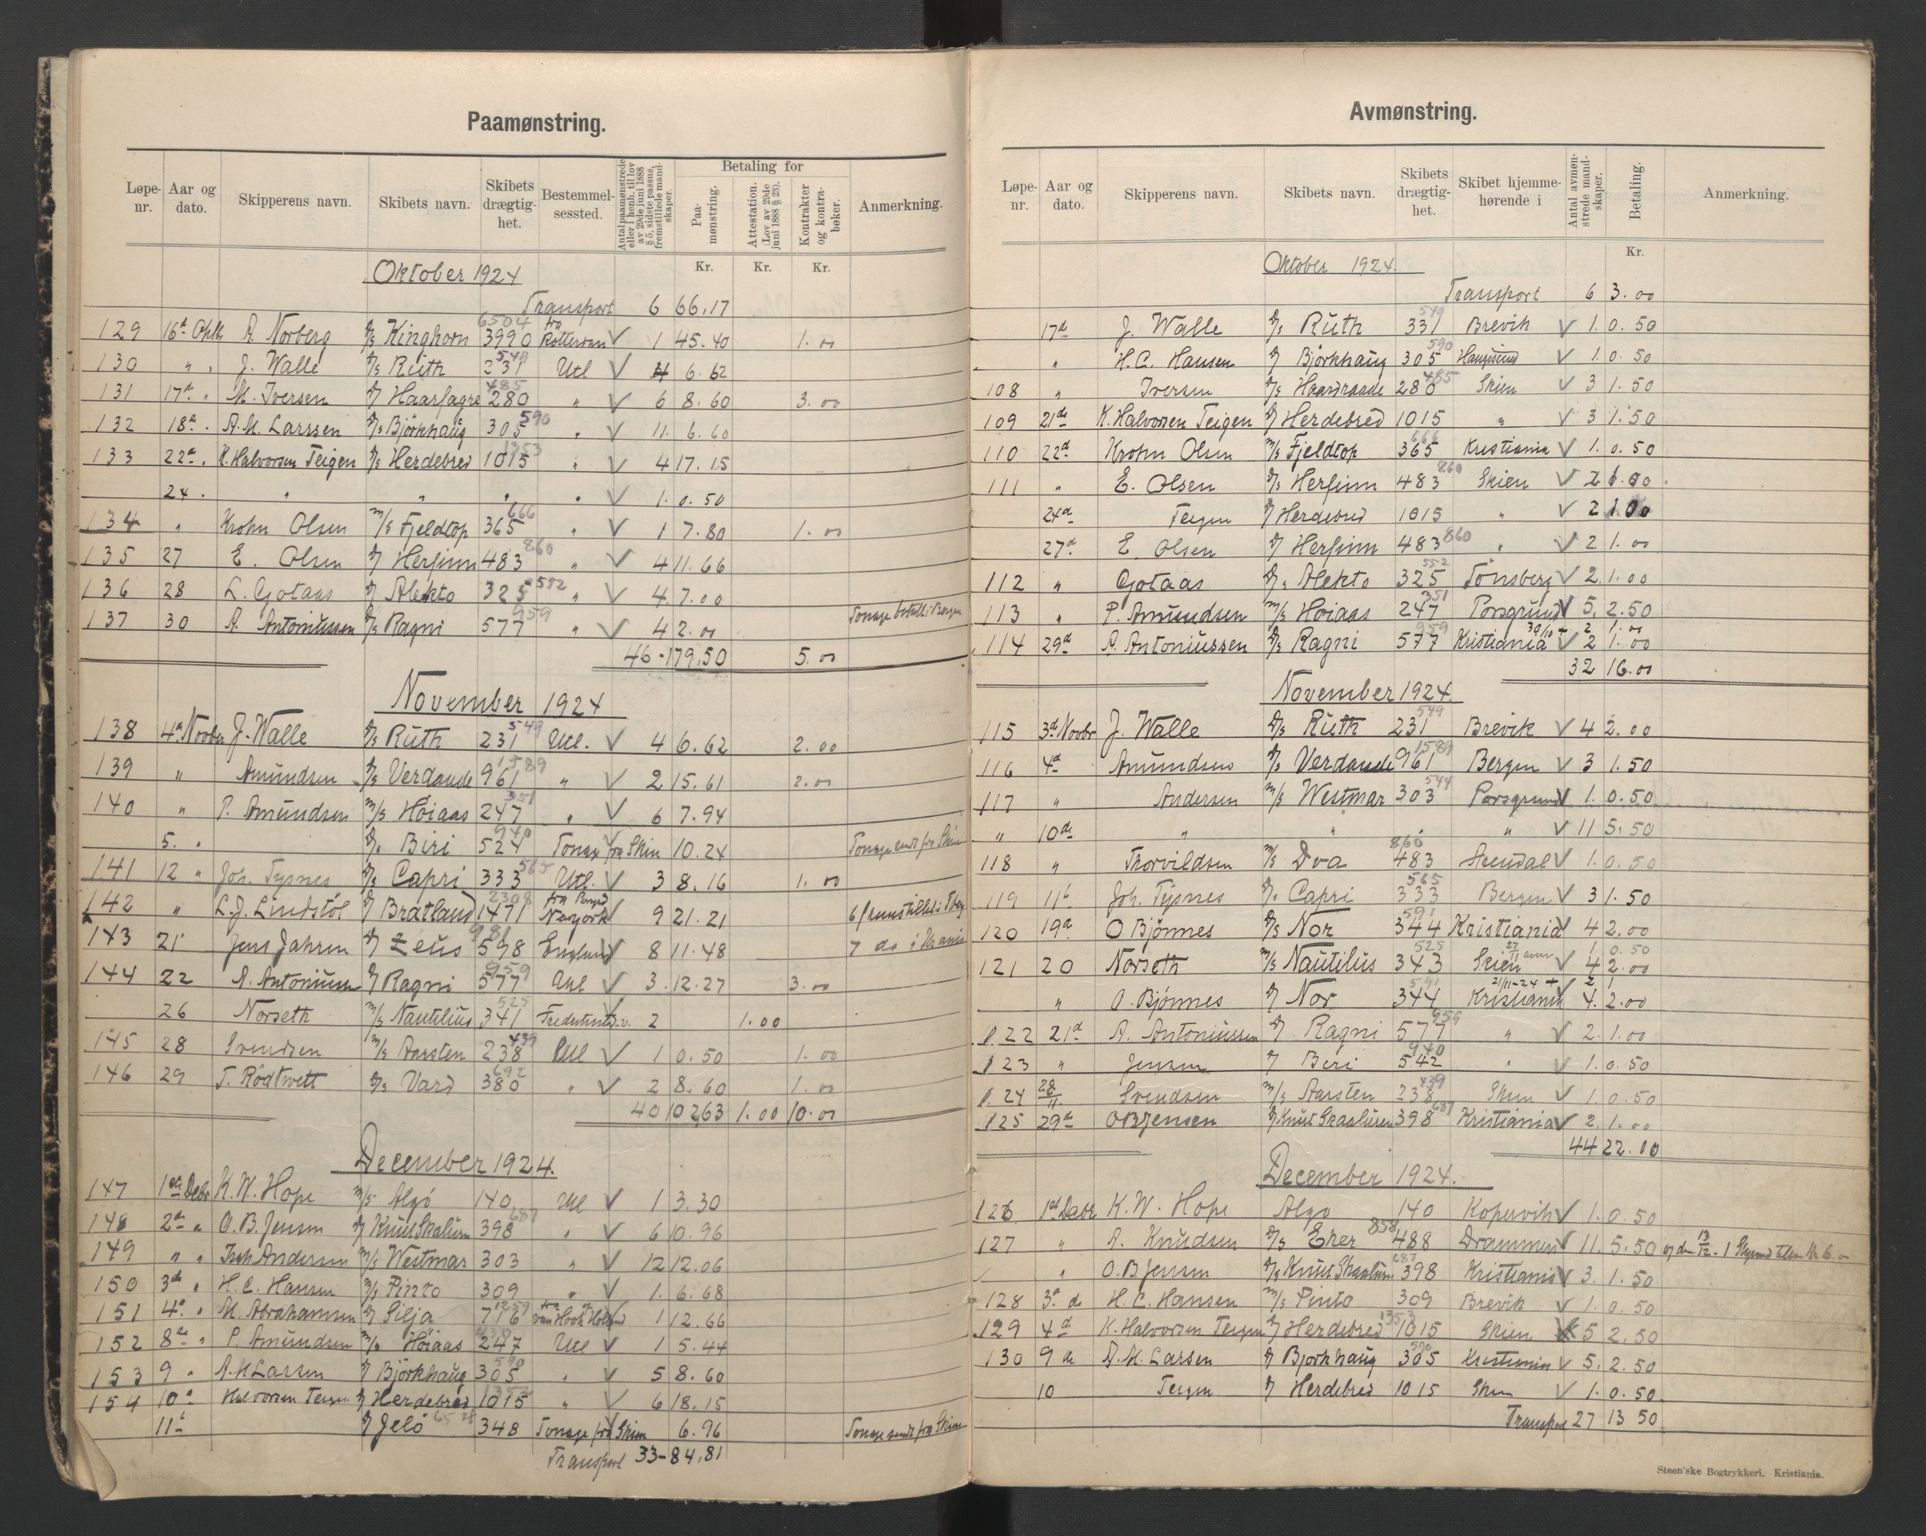 Paamønstring.
Løpe-nr. Aar og dato. Skipperens navn. Skibets navn. Skibets drægtighet. Bestemmelsessted. Antal paamønstrede eller i henh. til lov av 29de juni 1888 § 5, sidste passus, fremstillede mandskaper. Betaling for Paamønstring. Attestation. (Lov av 29de juni 1888 § 23). Kontrakter og kontrabøker. Anmerkning.
Kr. Kr. Kr.
Oktober 1924
Transport 6 66.17
129 16d Oktb A. Norberg d/s Kinghorn 6504 3990 fra Rotterdam V 1 45.40 1.00
130 " " J. Walle d/s Ruth 549 231 Utl V 4 6.62
131 17d " M. Iversen d/ Haarfagre 485 280 " V 6 8.60 3.00
132 18d " A.M. Larssen d/s Bjørkhaug 305 590 " V 11 6.60
133 22d " K. Halvorsen Teigen d/s Herdebred 1353 1015 " V 4 17.15
24 " " " " " V 1 0.50
134 " Krohn Olsen m/s Fjeldtop 365 666 " V 1 7.80 1.00
135 27 E. Olsen d/ Herfinn 483 860 " V 4 11.66
136 28 L. Gotaas d/ Alekto 325 552 " V 4 7.00
137 30 A. Antoniussen d/s Ragni 577 959 " V 4 2.00 Tonage betalt i Bergen
46 - 179.50 5.00
November 1924
138 4d Novbr J. Walle d/s Ruth 231 549 Utl. V 4 6.62 2.00
139 " Amundsen d/s Verdande 961 1589 " V 2 15.61 2.00
140 " P. Amundsen m/s Høiaas 247 351 " V 6 7.94
5. " d/s Biri 524 940 Tonage fra Skien 10.24 Tonage sendt fra Skien
141 12 " Joh. Tysnes d/s Capri 333 565 Utl. V 3 8.16 1.00
142 " L.J. Lindstøl d/ Bratland 1471 2308 Newyork V 9 21.21
143 21 Jens Jahren d/ Zeus 598 981 England V 8 11.48
144 22 A. Antoniussen d/ Ragni 577 959 Utl V 3. 12.27 3.00
26 Norseth m/s Nautilius 341 525 2 1.00
145 28 Svendsen m/s Aarsten 238 439 Utl V 1 0.50 1.00
146 29 T. Rødtvett d/s Vard 380 692 " V 2 8.60 1.00
40 102.63 1.00 10.00
December 1924.
147 1ste Debr K.W. Hope m/s Algø 140 Utl V 1 3.30
148 2d " O.B. Jensen d/ Knut Skaaluren 398 687 " V 6 10.96
149 " " Andersen m/s Westmar 303 " V 12 12.06
150 3d " H.C. Hansen m/s Pinto 309 " V 1. 6.68
151 4d " M. Abrahamsen d/ Silja 776 1259 V 1 12.66
152 8d " P. Amundsen m/s Høiaas 247 Utl V 1 5.44
153 9 " A.M. Larsen d/ Bjørkhaug 305 590 " V 5 8.60
154 10d Halvorsen Teigen d/ Herdebred 1015 1353 " V 6 18.15
11t d/ Jelø 348 Tonage fra Skien 6.96 Tonage sendt fra Skien
Transport 33 - 84.81
Avmønstring.
Løpe-nr. Aar og dato. Skipperens navn. Skibets navn. Skibets drægtighet. Skibet hjemmehørende i Antal avmønstrede mandskaper. Betaling. Anmerkning.
Kr.
Oktober 1924.
Transport 6 3.00
17d J. Walle d/s Ruth 331 549 Brevik V 1. 0.50
" H.C. Hansen d/ Bjørkhaug 305 590 Haugesund V 1. 0.50
108 " Iversen d/s Haardraade 280 485 Skien V 3 1.50
109 21d K. Halvorsen Teigen d/ Herdebred 1015 " V 3 1.50
110 22d Krohn Olsen m/s Fjeldtop 365 666 Kristiania V 1. 0.50
111 " E. Olsen d/s Herfinn 483 860 Skien V 2 1.00
24d Teigen d/ Herdebred 1015 " V 2 1.00
27d E. Olsen d/ Herfinn 483 860 " V 2 1.00
112 " Gotaas d/s Alekto 325 552 Tønsberg V 2. 1.00
113 " P. Amundsen m/s Høiaas 247 351 Porsgrund V 5. 2.50
114 29d A. Antoniussen d/s Ragni 577 959 Kristiania 30/10 + V 2 2 1.00 1.00
32 16.00
November 1924.
115 3d Novbr J. Walle d/s Ruth 231 549 Brevik V 4 2.00
116 4d Amundsen d/s Verdande 961 1589 Bergen V 3 1.50
117 " Andersen m/s Westmar 303 544 Porsgrund V 1. 0.50
" 10d " " " " V 11 5.50
118 " Thorvildsen m/s Dva 483 860 V 1. 0.50
119 11t Joh. Tysnes d/s Capri 333 565 Bergen V 3 1.50
120 19d O Bjønnes d/s Nor 344 591 Kristiania V 4 2.00
121 20 Norseth m/s Nautilius 343 525 Skien V 1 4 0.50 2.00
" O. Bjønnes d/ Nor 344 591 Kristiania 21/11-24 + V 4. 2.00
122 21d A. Antoniussen d/ Ragni 577 959 " V 2. 1.00
123 " Jensen d/ Biri 542 940 " V 1. 0.50
124 28/11. Svendsen m/s Aarsten 238 439 Skien V 1. 0.50
125 29d O B Jensen d/ Knut Skaaluren 398 687 Kristiania V 2. 1.00
44 22.00
December 1924.
126 1st Debr K.W. Hope Algo 140 Kopervik V 1. 0.50
127 " A. Knudsen d/s Eker 858 488 Drammen V 11. 5.50
" O.B Jensen d/s Knut Skaaluren 398 687 Kristiania V 3. 1.50
128 3d de H.C. Hansen m/s Pinto 309 Brevik V 1. 0.50
129 4d K. Halvorsen Teigen d/ Herdebred 1353 1015 Skien V 5 2.50
130 9 de A.M. Larsen d/ Bjorkhaug 305 590 Kristiania V 5. 2.50
10 Teigen d/ Herdebred 1015 Skien V 1. 0.50
Transport 27 13 50
Steen'ske Bogtrykkeri, Kristiania.